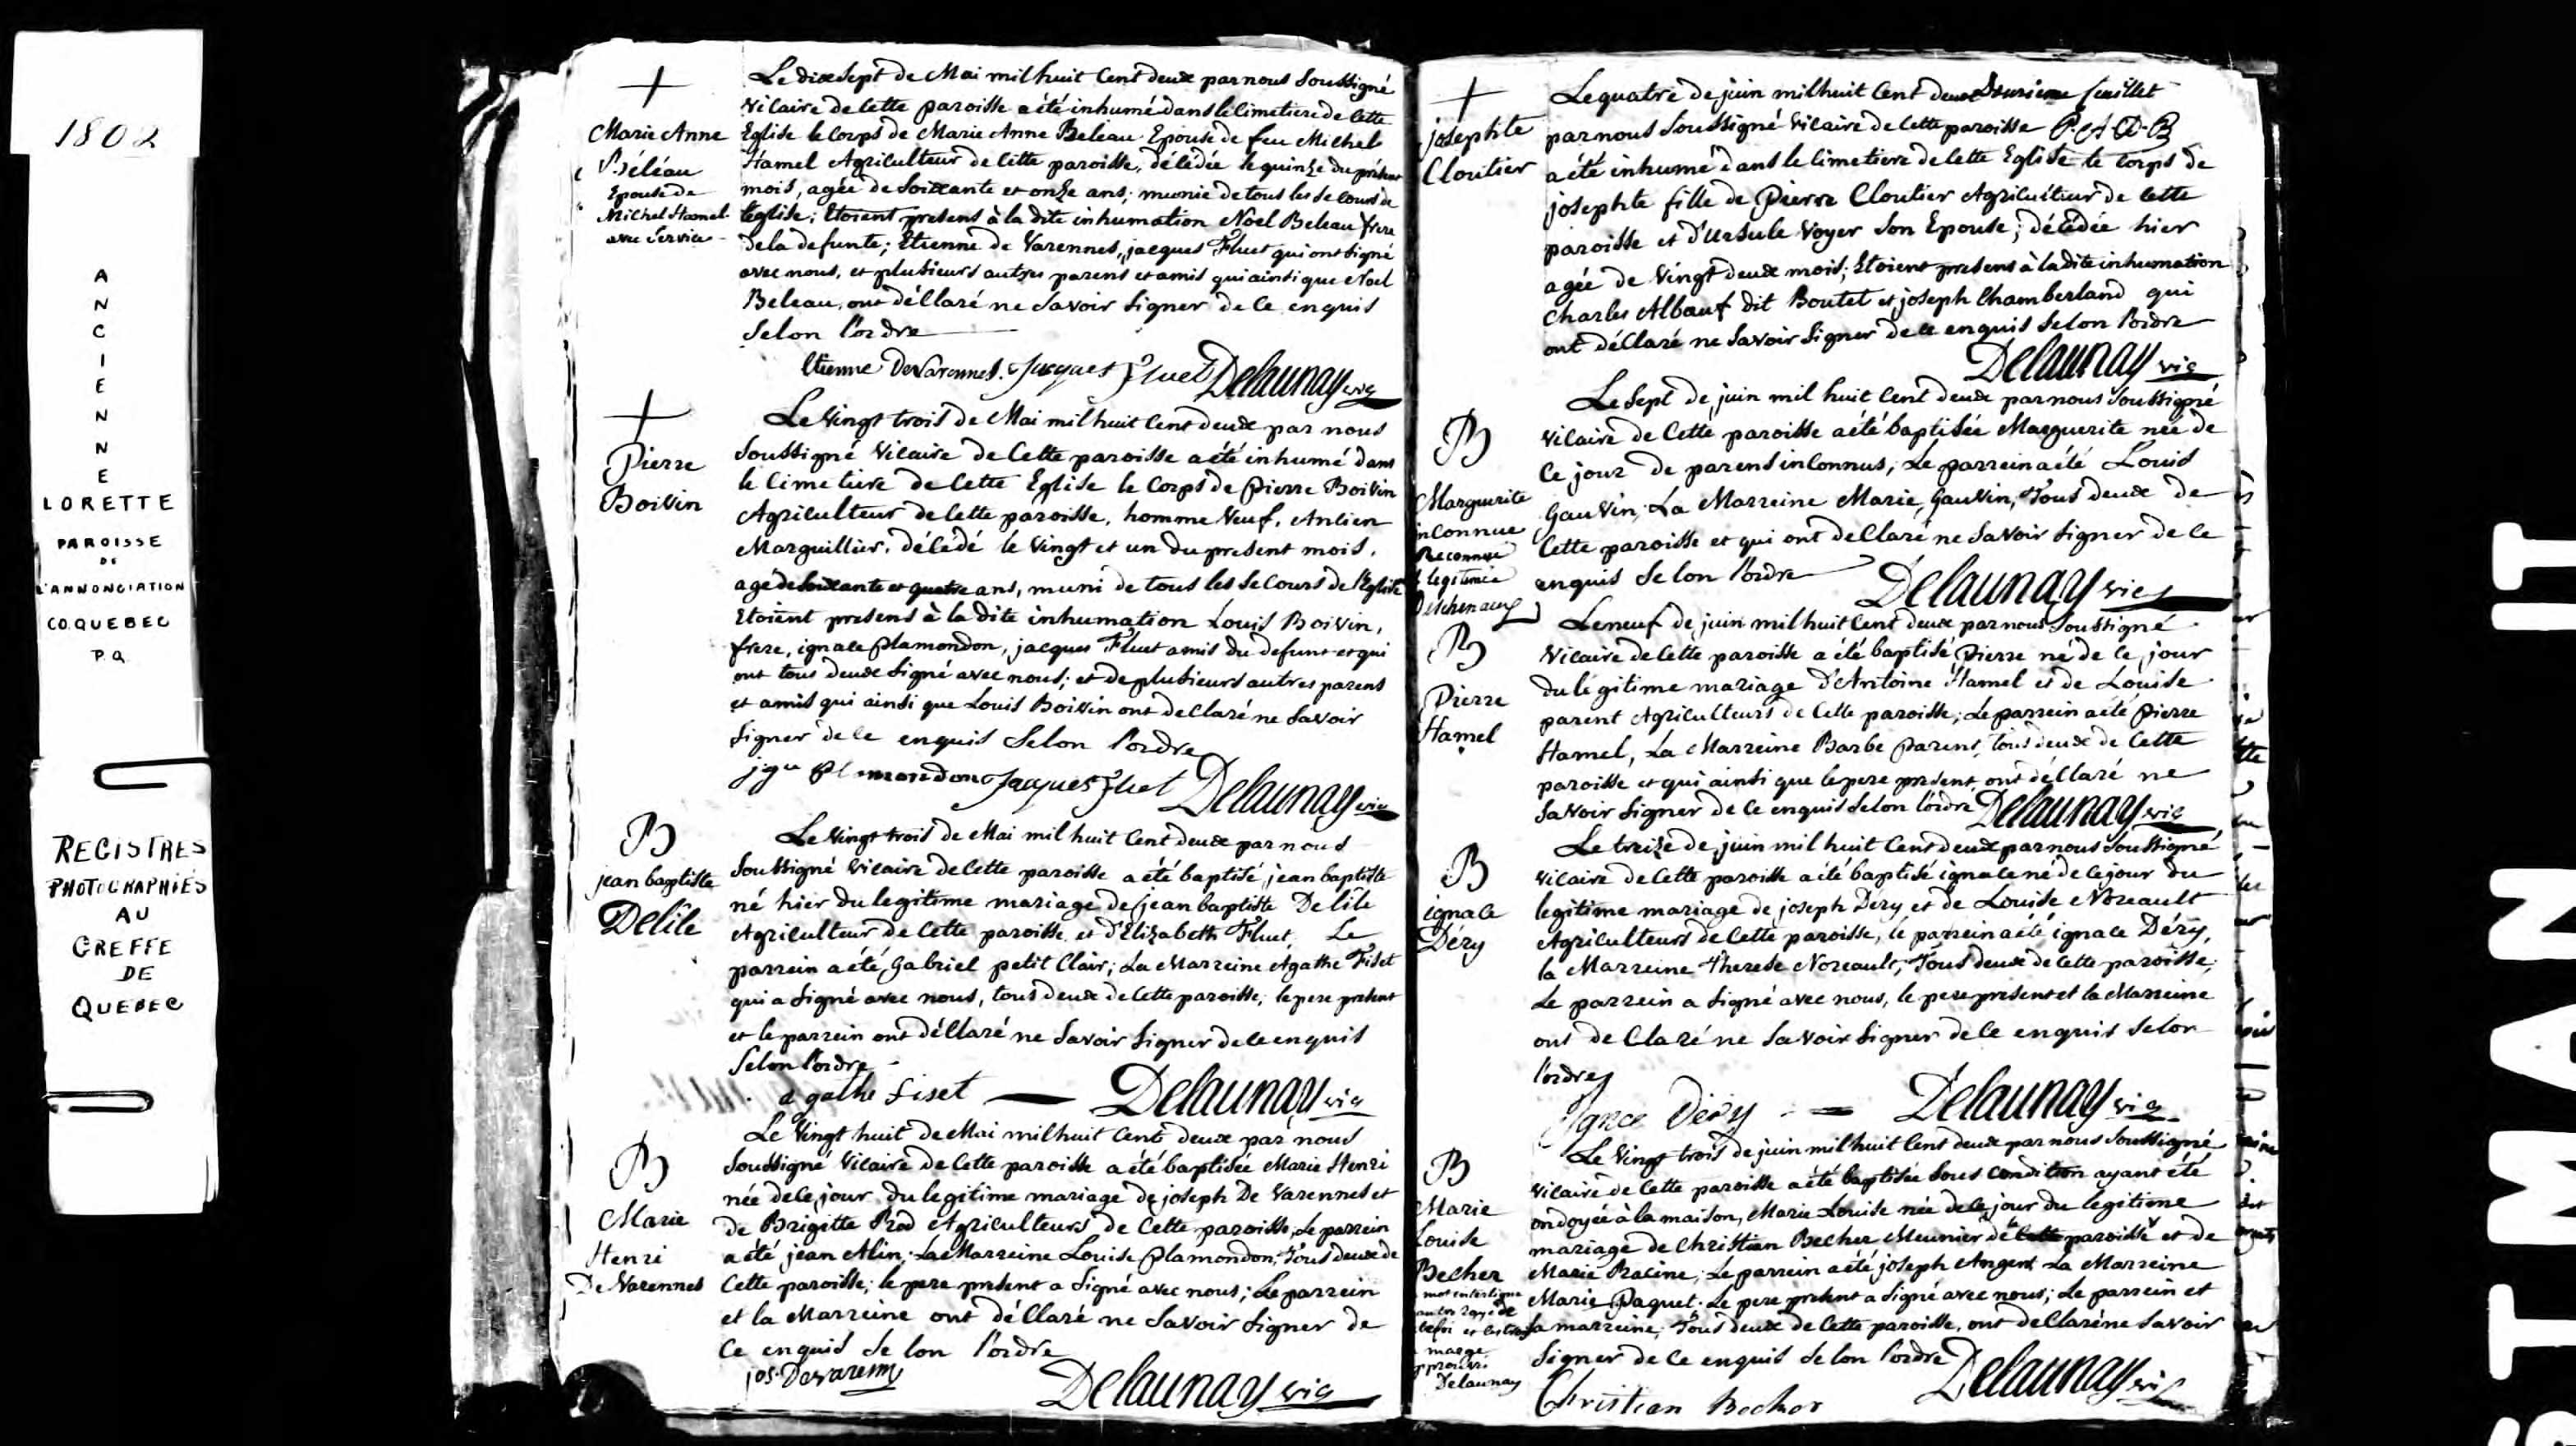 1802
ANCIENNE
LORETTE
PAROISSE
DE
L'ANNONCIATION
CO. QUEBEC
P.Q.
REGISTRES
PHOTOGRAPHIÉS
AU
GREFFE
DE
QUEBEC
Marie Anne
Béléau
Epouse de
Michel Hamel
avec Service
Le dixsept de Mai mil huit Cent deux par nous Soussigné
Vicaire de Cette paroisse a été inhumé dans le Cimetiere de Cette
Eglise le Corps de Marie Anne Beleau Epouse de feu Michel
Hamel Agriculteur de Cette paroisse, décédée le quinze du présent
mois, agée de Soixante et onze ans; munie de tous les Secours de
l'eglise; Etoient presens à la dite inhumation Noel Beleau frere
de la defunte; Etienne de Varennes, jacques Fluet qui ont Signé
avec nous, et plusieurs autres parens et amis qui ainsi que Noel
Beleau, ont déClaré ne Savoir Signer de Ce enquis
Selon l'ordre
Etienne DeVarennes. Jacques Fluet Delaunay vic
Pierre
Boivin
Le Vingt trois de Mai mil huit Cent deux par nous
Soussigné Vicaire de Cette paroisse a été inhumé dans
le Cimetiere de Cette Eglise le Corps de Pierre Boivin
Agriculteur de Cette paroisse, homme Veuf, Ancien
Marguillier, déCédé le Vingt et un du present mois,
agé de Soixante et quatre ans, muni de tous les Secours de l'Eglise
Etoient presens à la dite inhumation Louis Boivin,
frere, ignace Plamondon, jacques Fluet amis du defunt et qui
ont tous deux Signé avec nous; et de plusieurs autres parens
et amis qui ainsi que Louis Boivin ont declaré ne Savoir
Signer de Ce enquis Selon l'ordre
jgn Plamondon Jacques Fluet Delaunay vic
B
jean baptiste
Delile
Le Vingt trois de Mai mil huit Cent deux par nous
Soussigné Vicaire de Cette paroisse a été baptisé jean baptiste
né hier du legitime mariage de jean baptiste Delile
Agriculteur de Cette paroisse et d'Elizabeth Fluet, Le
parrein a été Gabriel petit Clair; La Marreine Agathe Fiset
qui a Signé avec nous, tous deux de Cette paroisse; le pere present
et le parrein ont déClaré ne Savoir Signer de Ce enquis
Selon l'ordre
agathe Fiset Delaunay vic
B
Marie
Henri
De Varennes
Le Vingt huit de Mai mil huit Cent deux par nous
Soussigné Vicaire de Cette paroisse a été baptisée Marie Henri
née de Ce jour du legitime mariage de joseph De Varennes et
de Brigitte Prod Agriculteurs de Cette paroisse, Le parrein
a été jean Alin; La Marreine Louise Plamondon, Tous deux de
Cette paroisse; le pere present a Signé avec nous; Le parrein
et la Marreine ont déClaré ne Savoir Signer de
Ce enquis Selon l'ordre
jos. Devarenn
Delaunay vic
josephte
Cloutier
Le quatre de juin mil huit Cent deux Deuxieme feuillet
par nous Soussigné Vicaire de Cette paroisse P. A. D. B
a été inhumé dans le Cimetiere de Cette Eglise le Corps de
josephte fille de Pierre Cloutier Agriculteur de Cette
paroisse et d'Ursule Voyer Son Epouse; décédée hier
agée de Vingt deux mois; Etoient presens à la dite inhumation
Charles Albœuf dit Boutet et joseph Chamberland qui
ont déClaré ne Savoir Signer de Ce enquis Selon l'ordre
Delaunay vic
B
Marguerite
inconnue
Reconnue
& legitimée
Deschenaux
Le Sept de juin mil huit Cent deux par nous Soussigné
Vicaire de Cette paroisse a été baptisée Marguerite née de
Ce jour de parens inConnus; Le parrein a été Louis
Gauvin, La Marreine Marie Gauvin, Tous deux de
Cette paroisse et qui ont deClaré ne Savoir Signer de Ce
enquis Selon l'ordre Delaunay vic
B
Pierre
Hamel
Le neuf de juin mil huit Cent deux par nous Soussigné
Vicaire de Cette paroisse a été baptisé Pierre né de Ce jour
du légitime mariage d'Antoine Hamel et de Louise
parent Agriculteurs de Cette paroisse; Le parrein a été Pierre
Hamel, La Marreine Barbe Parent, tous deux de Cette
paroisse et qui ainsi que le pere present ont déClaré ne
Savoir Signer de Ce enquis Selon l'ordre Delaunay vic
B
ignace
Déry
Le treize de juin mil huit Cent deux par nous Soussigné
Vicaire de Cette paroisse a été baptisé ignace né de Ce jour du
legitime mariage de joseph Dery et de Louise Noreault
Agriculteurs de Cette paroisse, le parrein a été ignace Déry,
la Marreine Therese Noreault, Tous deux de Cette paroisse;
Le parrein a Signé avec nous, le pere present et la Marreine
ont deClaré ne Savoir Signer de Ce enquis Selon
l'ordre
Ignace Déry Delaunay vic
B
Marie
Louise
Becher
Le Vingt trois de juin mil huit Cent deux par nous Soussigné
Vicaire de Cette paroisse a été baptisée Sous Condition ayant été
ondoyée à la maison, Marie Louise née de Ce jour du legitime
mariage de Christian Becher Meunier de paroisse et de
Marie Racine; Le parrein a été joseph Angers La Marreine
Marie Paquet. Le pere present a Signé avec nous; Le parrein et
la marreine, Tous deux de Cette paroisse, ont deClaré ne Savoir
Signer de Ce enquis Selon l'ordre Delaunay vic
marge
Delaunay
Christian Becher